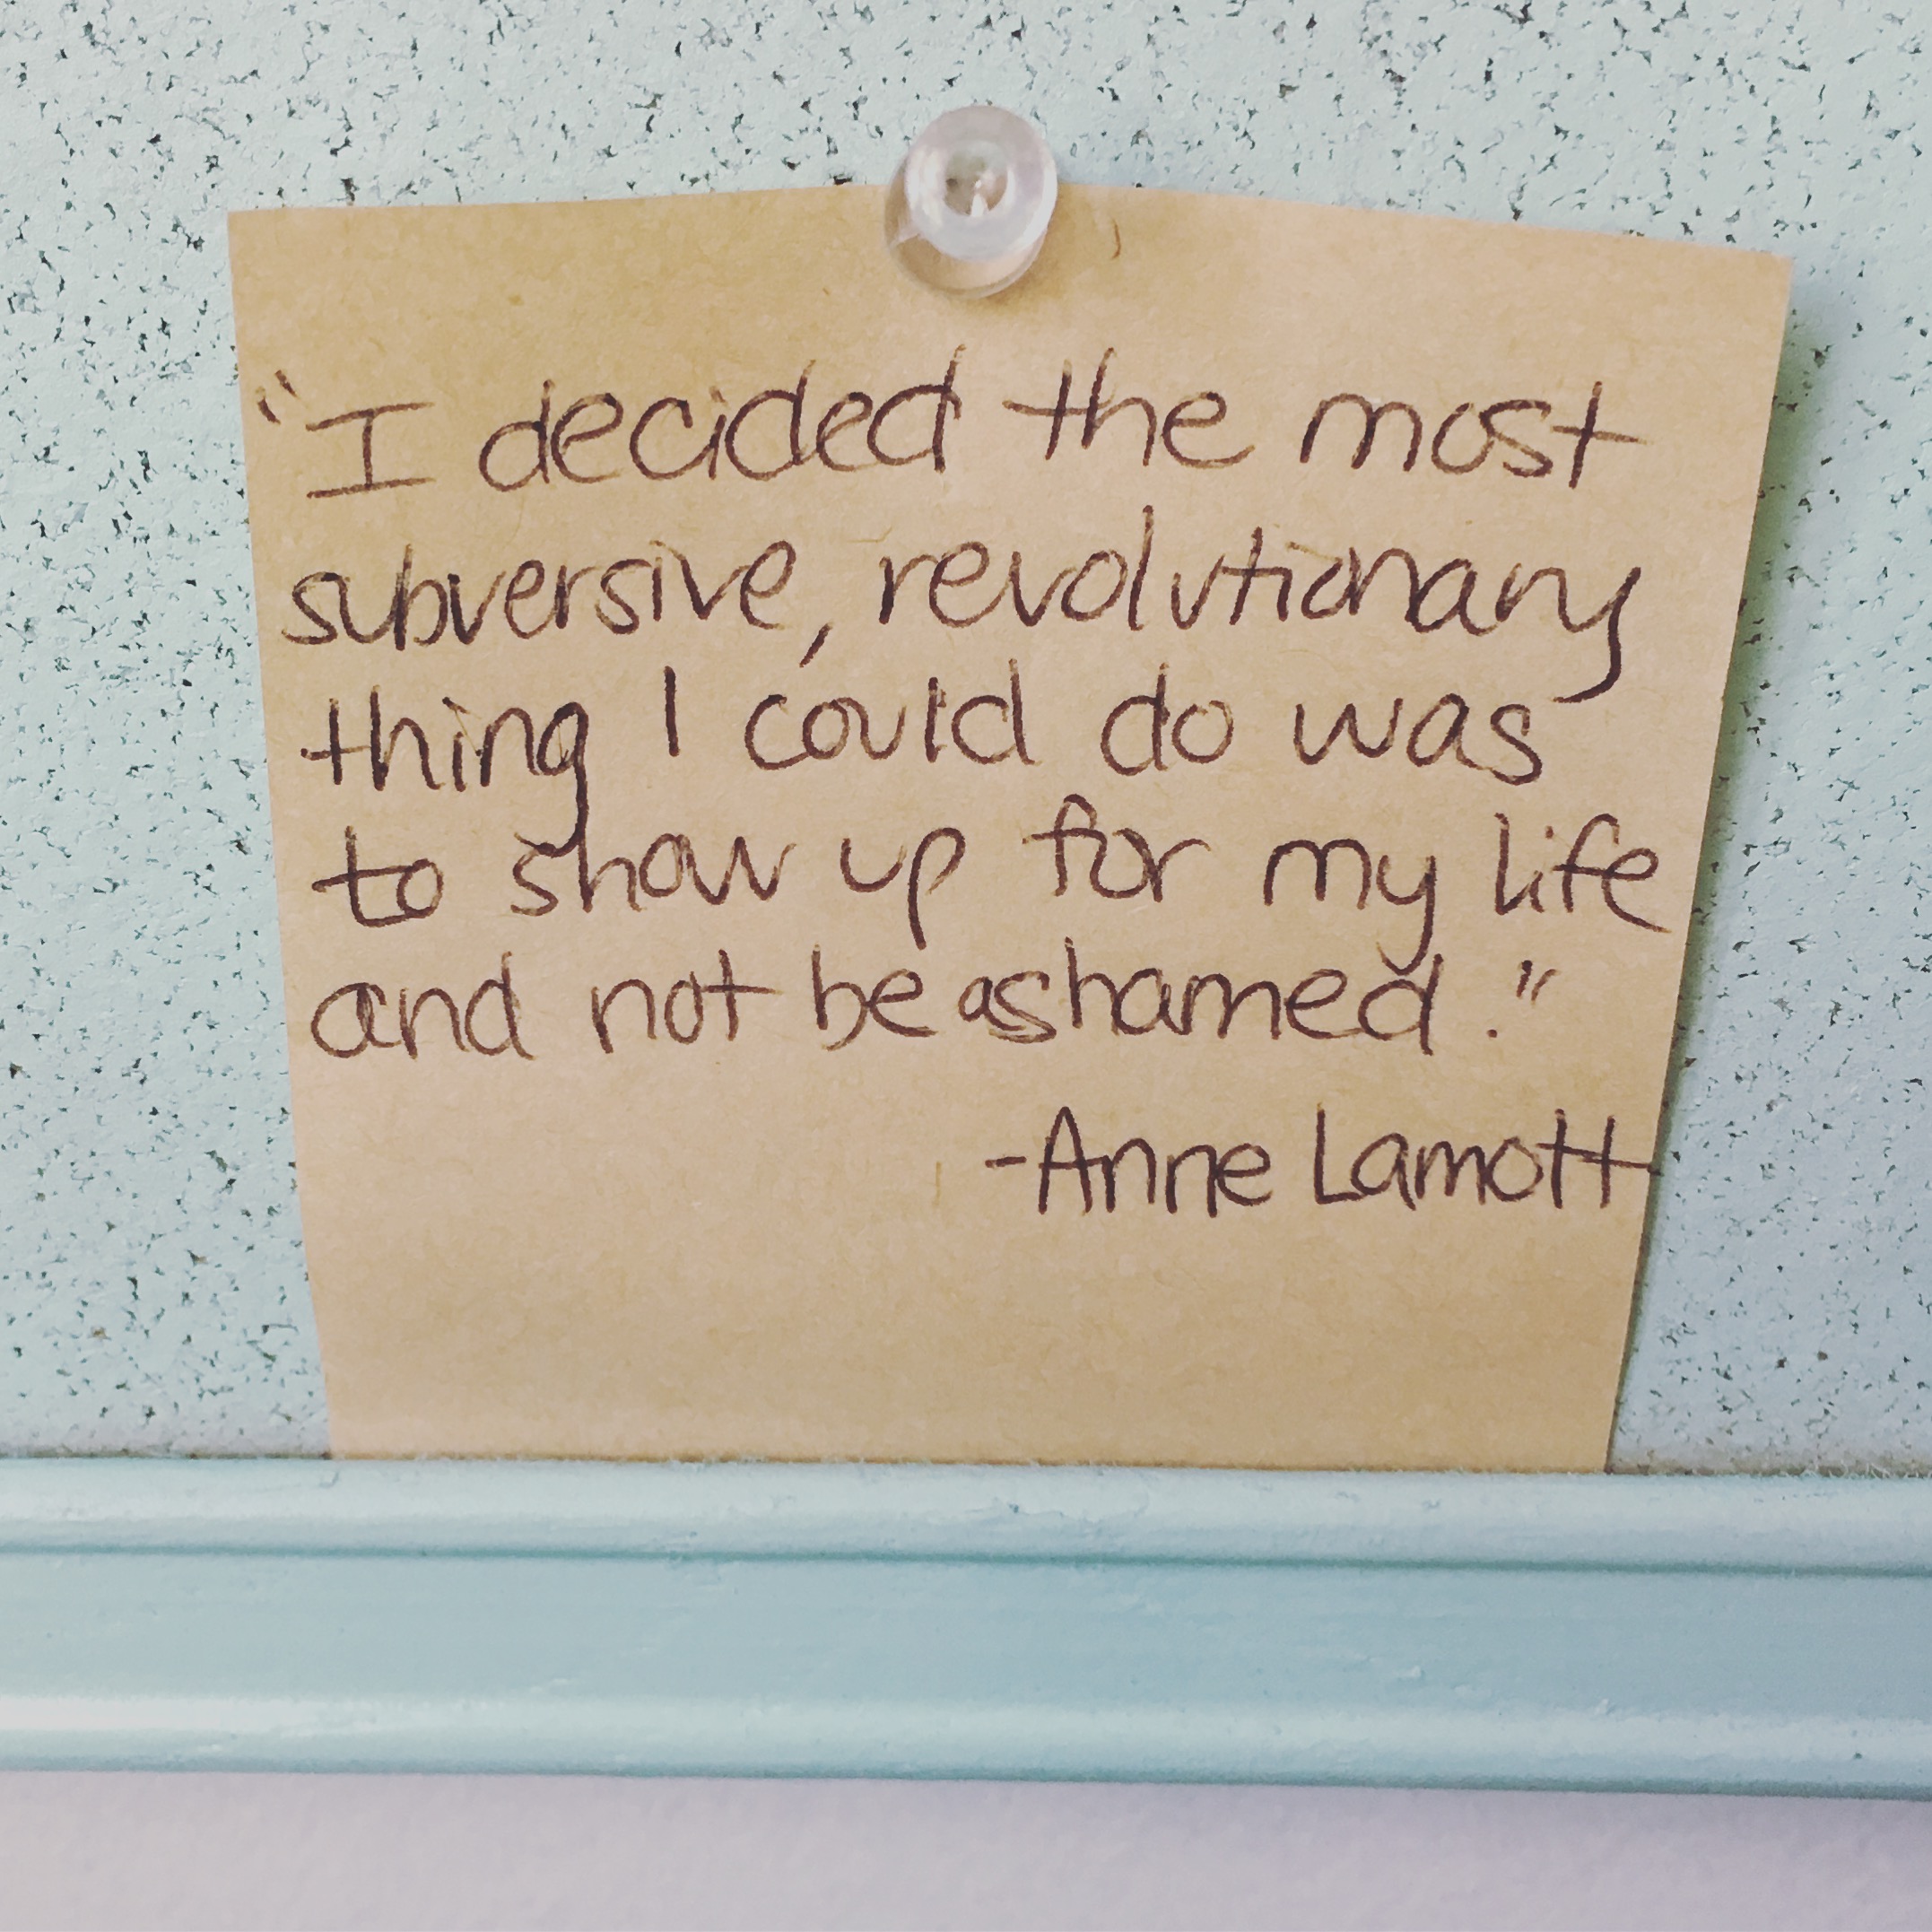 "I decided the most
subversive, revolutionary
thing I could do was
to show up for my life
and not be ashamed."
-Anne Lamott